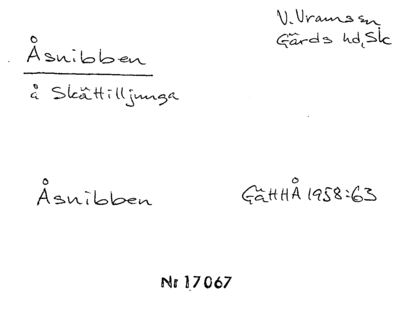 V. Vram ssn
Gärds hd, Sk
Åsnibben
å Skättilljunga
Åsnibben
GäHHÅ 1958:63
Nr 17067